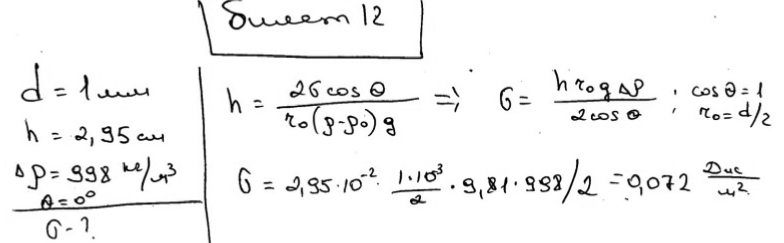 билет 12
d = 1 мм
h = 2,95 см
Δρ = 998 кг/м³
θ = 0°
σ - ?
h = 2σ cos θ / r₀(ρ-ρ₀) g => σ = h r₀ g Δρ / 2 cos θ ; cos θ = 1 ; r₀ = d/2
σ = 2,95·10⁻² · 1·10³/2 · 9,81 · 998/2 = 0,072 Дж/м²